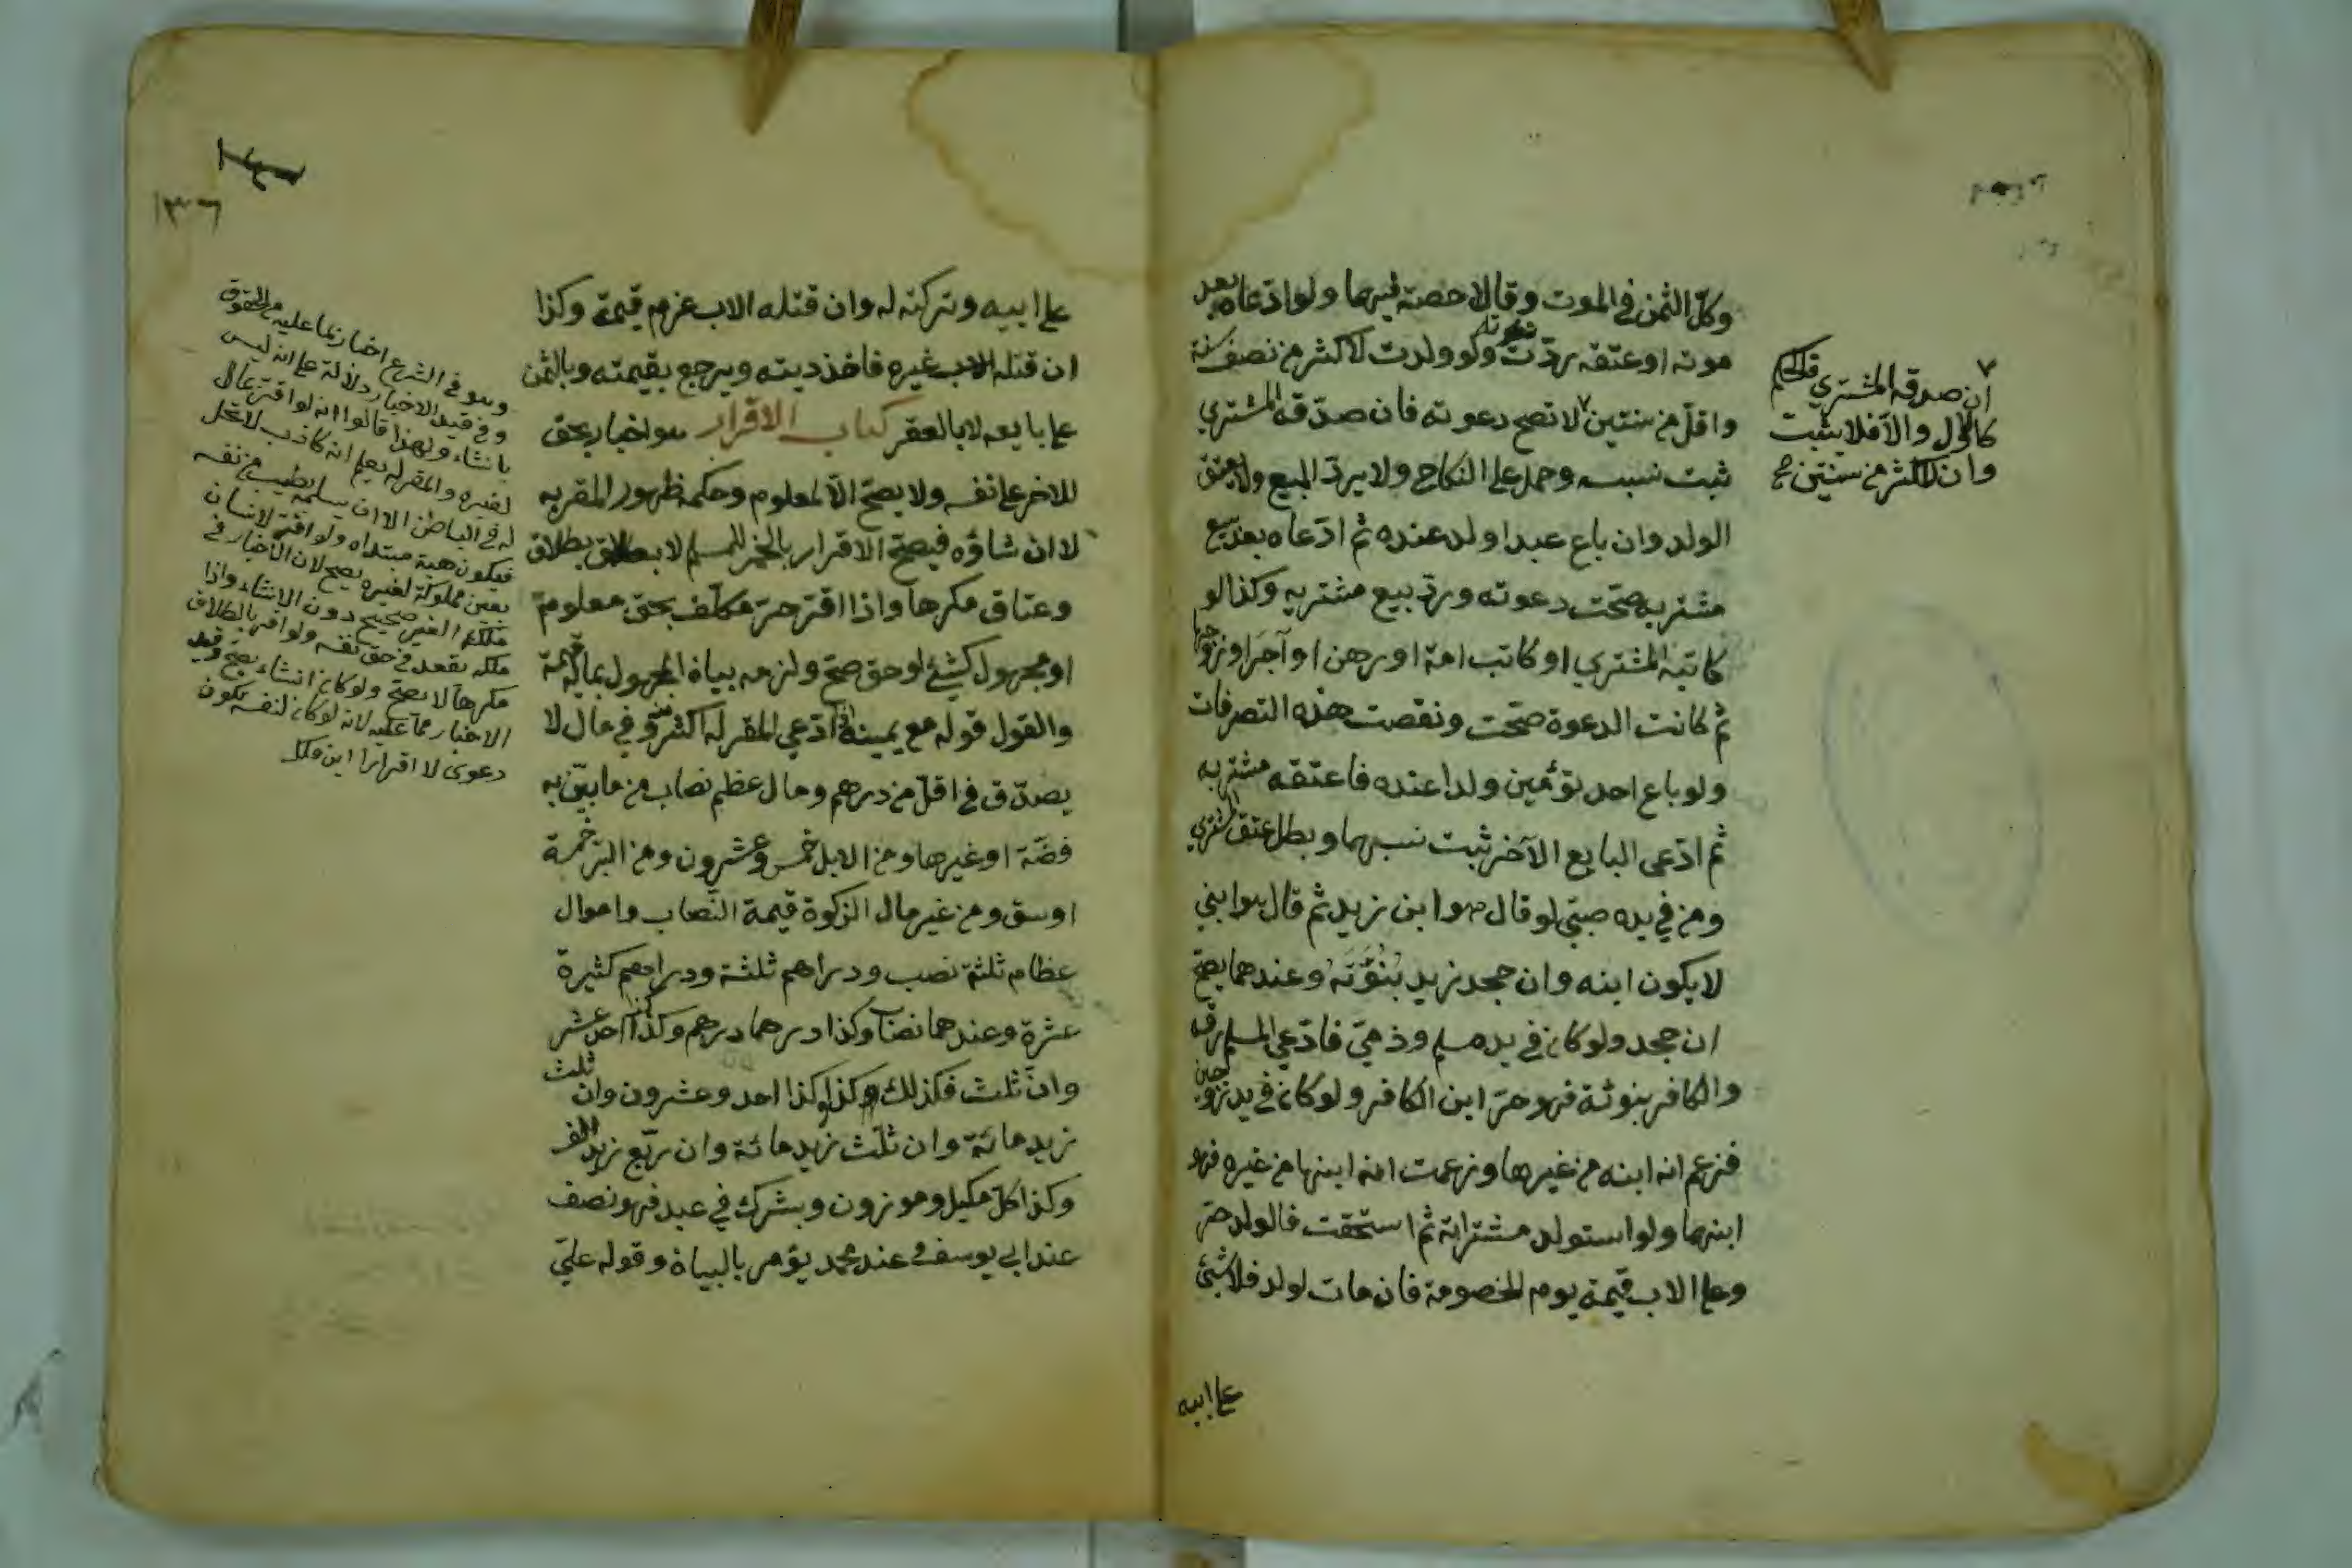 وكل الثمن في الموت وقالا حصته فيهما ولو ادعاه بعد
موته او عتقه ردت ولو ولدت لاكثر من نصف سنة
واقل من سنتين لا تصح دعوته فان صدقه المشتري
ثبت نسبه وحمل على النكاح ولا يرد البيع ولا يعتق
الولد وان باع عبدا ولد عنده ثم ادعاه بعد بيع
مشتريه صحت دعوته ورد بيع مشتريه وكذا لو
كاتبه المشتري او كاتب امه او رهن او آجر او زوجها
ثم كانت الدعوة صحت ونقضت هذه التصرفات
ولو باع احد توءمين ولدا عنده فاعتقه مشتريه
ثم ادعى البايع الآخر ثبت نسبهما وبطل عتق المشتري
ومن في يده صبي لو قال هو ابن زيد ثم قال هو ابني
لا يكون ابنه وان جحد زيد بُنُوَّتَهُ وعندهما يصح
ان جحد ولو كان في يد مسلم وذمي فادعى المسلم رقه
والكافر بنوته فهو حر ابن الكافر ولو كان في يد زوجين
فزعم انه ابنه من غيرها وزعمت انه ابنها من غيره فهو
ابنهما ولو استولد مشتراته ثم استحقت فالولد حر
وعلى الاب قيمته يوم الخصومة فان مات لولد فلا شئ
على ابيه
ان صدقه المشتري فالحكم
كالاول والا فلا يثبت
وان لاكثر من سنتين صح
١٣٦
على ابيه وتركته له وان قتله الاب غرم قيمته وكذا
ان قتله غيره فاخذ ديته ويرجع بقيمته وبالثمن
على بايعه لا بالعقر كتاب الاقرار هو اخبار بحق
للاخر على نفسه ولا يصح الا لمعلوم وحكمه ظهور المقر به
لا انشاؤه فيصح الاقرار بالخمر للمسلم لا بطلاق
وعتاق مكرها واذا اقر حر مكلف بحق معلوم
او مجهول كشئ او حق صح ولزمه بيان المجهول بماله قيمة
والقول قوله مع يمينه ان ادعى المقر له اكثر منه وفي مال لا
يصدق في اقل من درهم ومال عظيم نصاب من ما بين به
فضة او غيرها ومن الابل خمس وعشرون ومن البر خمسة
اوسق ومن غير مال الزكوة قيمة النصاب واموال
عظام ثلثة نصب ودراهم ثلثة ودراهم كثيرة
عشرة وعندهما نصاب وكذا درهما درهم وكذا كذا احد عشر
وان ثلث فكذلك وكذا وكذا احد وعشرون وان ثلث
زيد مائة وان ثلث زيد مائة وان ربع زيد الف
وكذا كل مكيل وموزون وبشرك في عبد فهو نصف
عند ابي يوسف وعند محمد يؤمر بالبيان وقوله علي
وهو في الشرع اخبار بما عليه من الحقوق
وفي قيد الاخبار دلالة على انه ليس
بانشاء ولهذا قالوا انه لو اقر بمال
لغيره والمقر له يعلم انه كاذب لا يحل
له في الباطن الا ان يسلمه بطيب من نفسه
فيكون هبة مبتداه ولو اقر لانسان
بعين مملوكة لغيره يصح لان الاخبار في
ملك الغير صحيح دون الانشاء واذا
ملكه ينفذ في حق نفسه ولو اقر بالطلاق
مكرها لا يصح ولو كان انشاء يصح وقيد
الاخبار مما عليه لانه لو كان لنفسه يكون
دعوى لا اقرارا ابن ملك